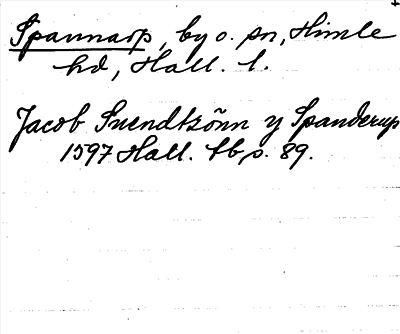 Spannarp, by o. sn, Himle
hd, Hall. l.
Jacob Suendtzönn y Spanderup
1597 Hall. tb s. 89.